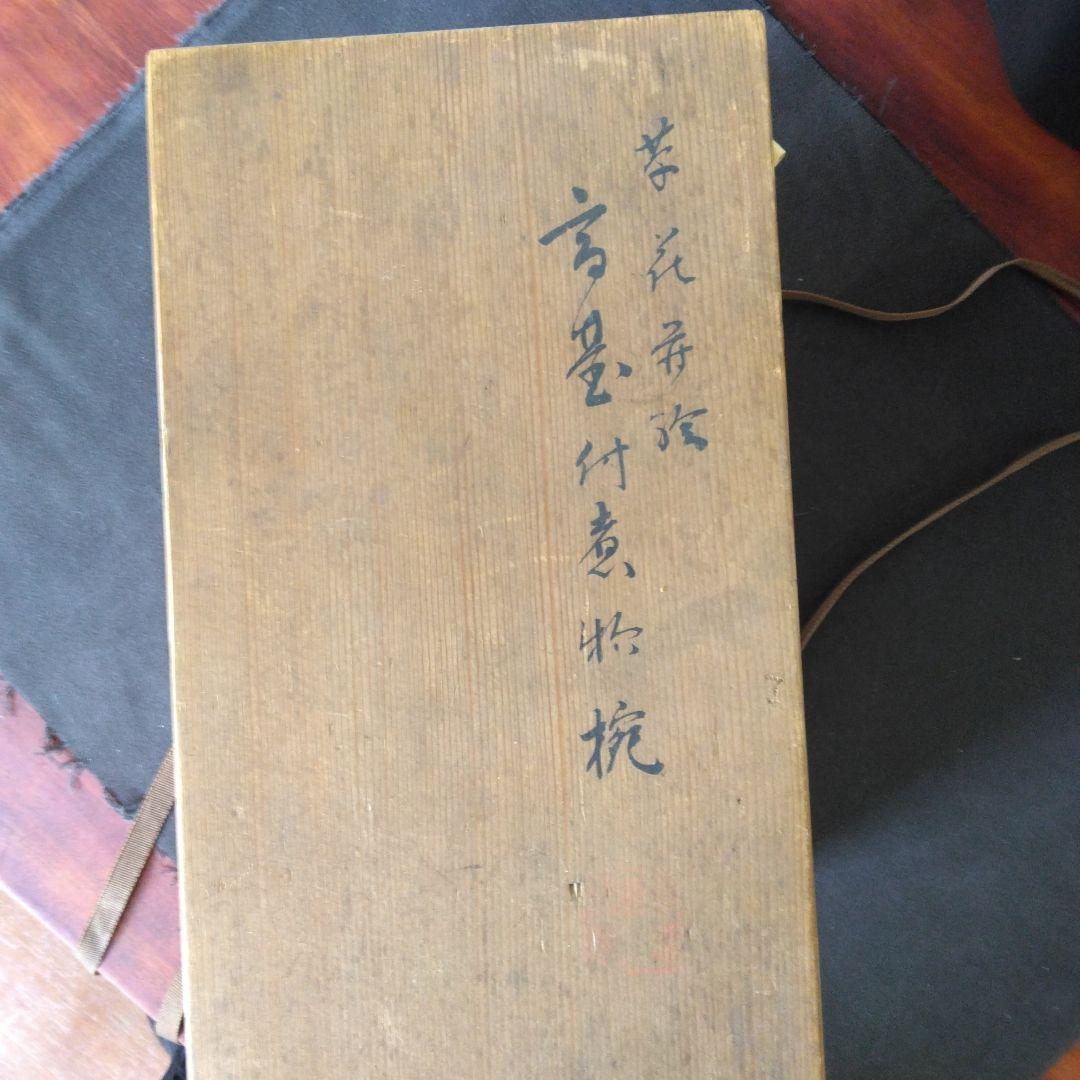 草花蒔絵
高臺付煮物椀